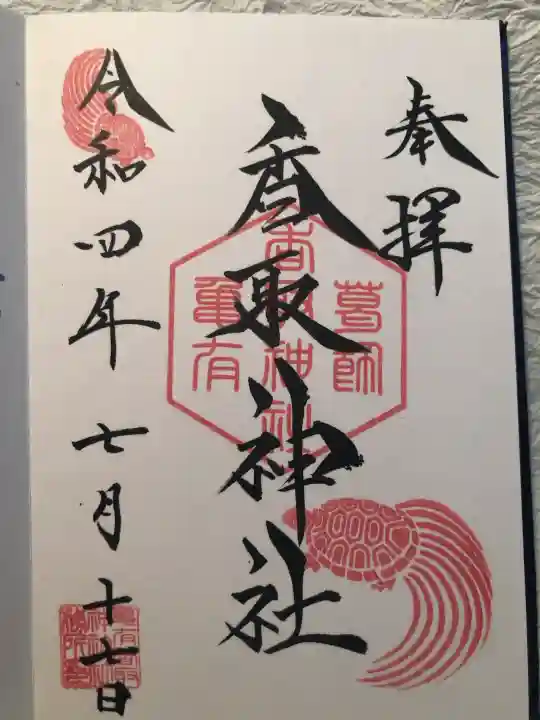 奉拝
香取神社
葛飾
香取神社
亀有
令和四年七月十七日